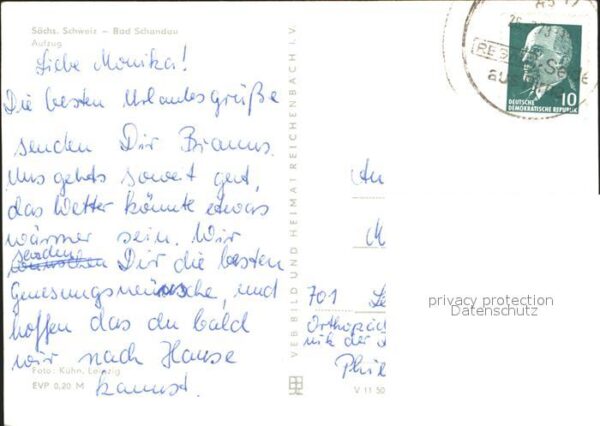 Sächs. Schweiz – Bad Schandau
Aufzug
Liebe Monika!
Die besten Urlaubsgrüße
senden Dir Brauns.
Uns gehts soweit gut,
das Wetter könnte etwas
wärmer sein. Wir
senden
wünschen Dir die besten
Genesungswünsche, und
hoffen das du bald
wir nach Hause
kannst.
Foto: Kühn, Leipzig
EVP 0,20 M
VEB BILD UND HEIMAT REICHENBACH I. V.
V 11 50
An
M
701 Le
Orthopäd
nik der
Phil
privacy protection
Datenschutz
DEUTSCHE
DEMOKRATISCHE REPUBLIK
10